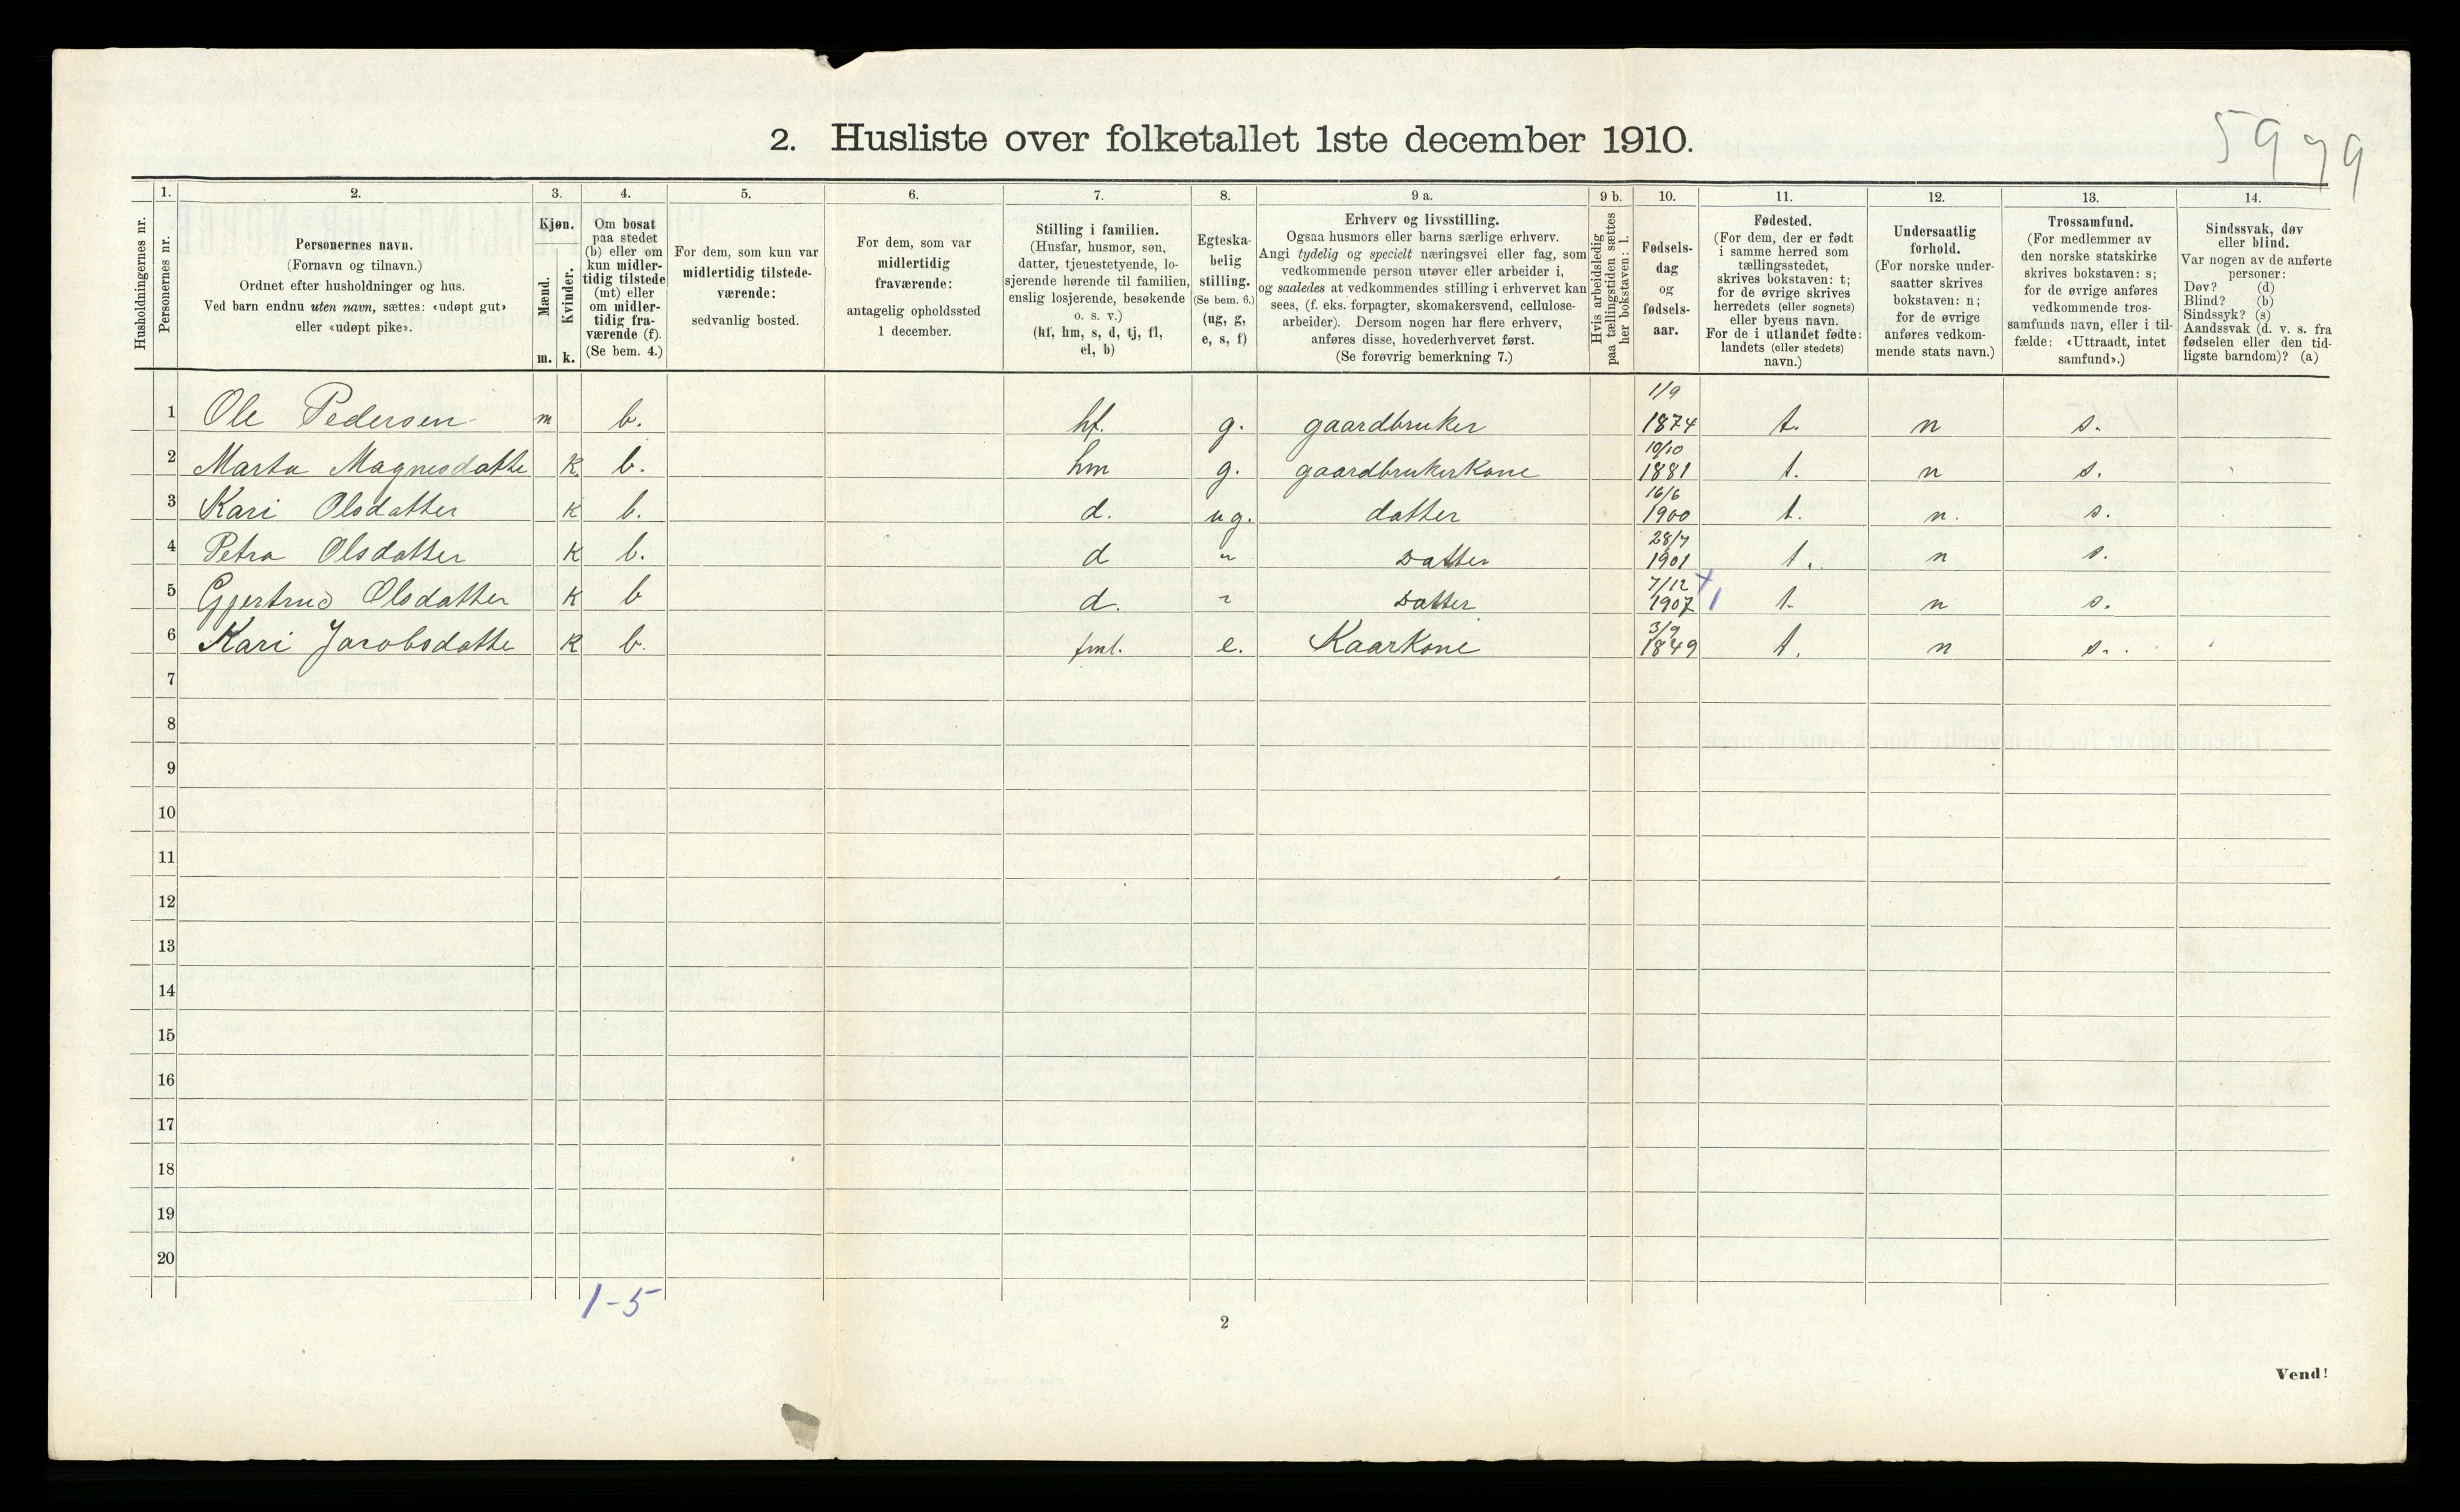 2. Husliste over folketallet 1ste december 1910.
5979
Husholdningernes nr.
1.
Personernes nr.
2.
Personernes navn.
(Fornavn og tilnavn.)
Ordnet efter husholdninger og hus.
Ved barn endnu uten navn, sættes: «udøpt gut»
eller «udøpt pike».
3.
Kjøn.
Mænd.
Kvinder.
m. k.
4.
Om bosat
paa stedet
(b) eller om
kun midler-
tidig tilstede
(mt) eller
om midler-
tidig fra-
værende (f).
(Se bem. 4.)
5.
For dem, som kun var
midlertidig tilstede-
værende:
sedvanlig bosted.
6.
For dem, som var
midlertidig
fraværende:
antagelig opholdssted
1 december.
7.
Stilling i familien.
(Husfar, husmor, søn,
datter, tjenestetyende, lo-
sjerende hørende til familien,
enslig losjerende, besøkende
o. s. v.)
(hf, hm, s, d, tj, fl,
el, b)
8.
Egteska-
belig
stilling.
(Se bem. 6.)
(ug, g,
e, s, f)
9 a.
Erhverv og livsstilling.
Ogsaa husmors eller barns særlige erhverv.
Angi tydelig og specielt næringsvei eller fag, som
vedkommende person utøver eller arbeider i,
og saaledes at vedkommendes stilling i erhvervet kan
sees, (f. eks. forpagter, skomakersvend, cellulose-
arbeider). Dersom nogen har flere erhverv,
anføres disse, hovederhvervet først.
(Se forøvrig bemerkning 7.)
9 b.
Hvis arbeidsledig
paa tællingstiden sættes
her bokstaven: l.
10.
Fødsels-
dag
og
fødsels-
aar.
11.
Fødested.
(For dem, der er født
i samme herred som
tællingsstedet,
skrives bokstaven: t;
for de øvrige skrives
herredets (eller sognets)
eller byens navn.
For de i utlandet fødte:
landets (eller stedets)
navn.)
12.
Undersaatlig
forhold.
(For norske under-
saatter skrives
bokstaven: n;
for de øvrige
anføres vedkom-
mende stats navn.)
13.
Trossamfund.
(For medlemmer av
den norske statskirke
skrives bokstaven: s;
for de øvrige anføres
vedkommende tros-
samfunds navn, eller i til-
fælde: «Uttraadt, intet
samfund».)
14.
Sindssvak, døv
eller blind.
Var nogen av de anførte
personer:
Døv? (d)
Blind? (b)
Sindssyk? (s)
Aandssvak (d. v. s. fra
fødselen eller den tid-
ligste barndom)? (a)
1 Ole Pedersen m b. hf. g. gaardbruker 1/9 1874 t. n s.
2 Marta Magnesdatte K b. hm g. gaardbrukerkone 10/10 1881 t. n s.
3 Kari Olsdatter K b. d. ug. datter 16/6 1900 t. n. s.
4 Petra Olsdatter K b. d " Datter 28/7 1901 t. n s.
5 Gjertrud Olsdatter K b d. " Datter 7/12 1907 t. n s.
6 Kari Jacobsdatte K b. fml. e. Kaarkone 3/9 1849 t. n s.
7
8
9
10
11
12
13
14
15
16
17
18
19
20
1-5
2
Vend!